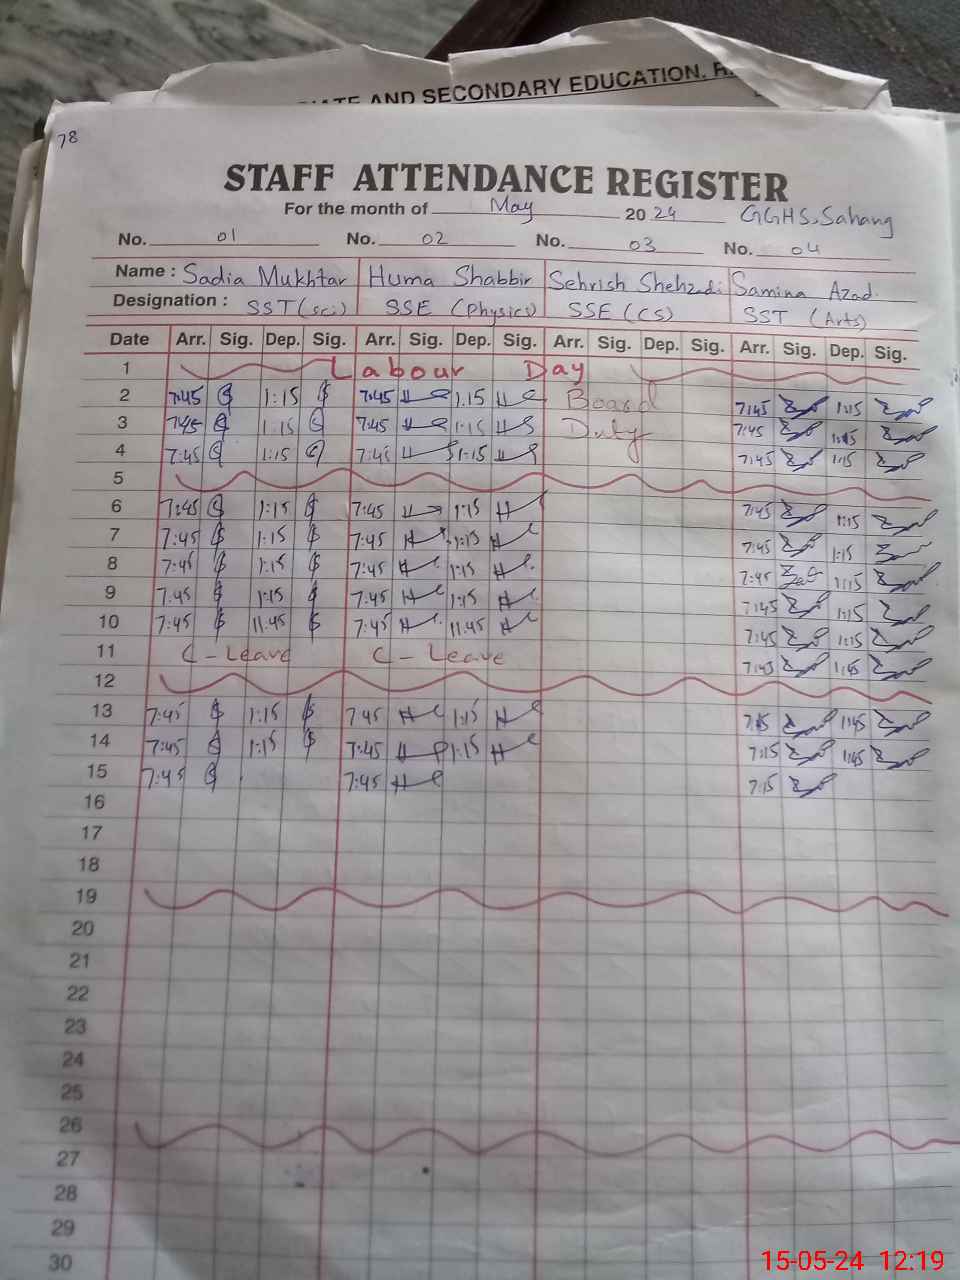 IATE AND SECONDARY EDUCATION, R
78
STAFF ATTENDANCE REGISTER
For the month of May 2024 GGHS, Sahang
No. 01 No. 02 No. 03 No. 04
Name : Sadia Mukhtar Huma Shabbir Sehrish Shehzadi Samina Azad
Designation : SST (sci) SSE (Physics) SSE (CS) SST (Arts)
Date Arr. Sig. Dep. Sig. Arr. Sig. Dep. Sig. Arr. Sig. Dep. Sig. Arr. Sig. Dep. Sig.
1 Labour Day
2 7:45 1:15 7:45 1:15 Board 7:45 1:15
3 7:45 1:15 7:45 1:15 Duty 7:45 1:15
4 7:45 1:15 7:45 1:15 7:45 1:15
5
6 7:45 1:15 7:45 1:15 7:45 1:15
7 7:45 1:15 7:45 1:15 7:45 1:15
8 7:45 1:15 7:45 1:15 7:45 1:15
9 7:45 1:15 7:45 1:15 7:45 1:15
10 7:45 11:45 7:45 11:45 7:45 1:15
11 C-Leave C-Leave 7:45 1:45
12
13 7:45 1:15 7:45 1:15 7:15 1:45
14 7:45 1:15 7:45 1:15 7:15 1:45
15 7:45 7:45 7:15
16
17
18
19
20
21
22
23
24
25
26
27
28
29
30
15-05-24 12:19